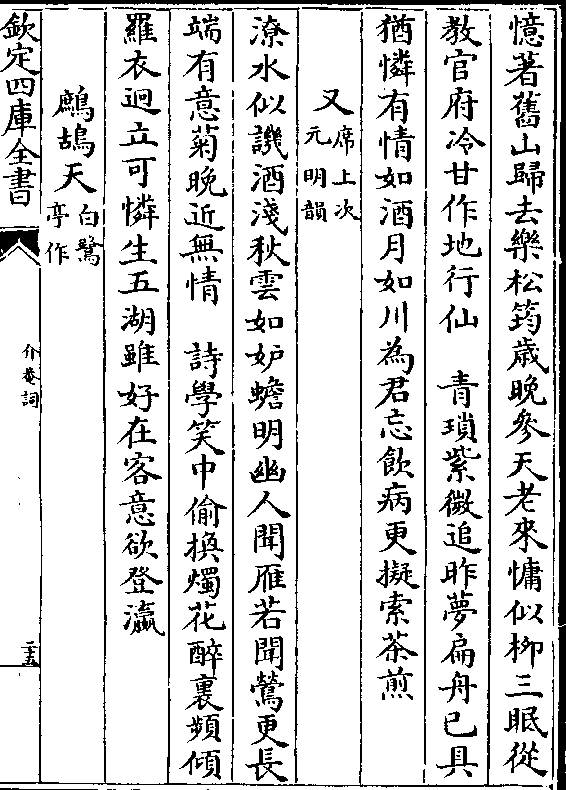 憶著舊山歸去樂松筠歳晚參天老來慵似柳三眠從
教官府冷甘作地行仙　青瑣紫微追昨夢扁舟已具
猶憐有情如酒月如川為君忘飲病更擬索茶煎
又席上次元明韻
潦水似譏酒淺秋雲如妒蟾明幽人聞雁若聞鶯更長
端有意菊晚近無情　詩學笑中偷換燭花醉裏頻傾
羅衣迥立可憐生五湖雖好在客意欲登瀛
鷓鴣天白鷺亭作
欽定四庫全書
介菴詞
二十五